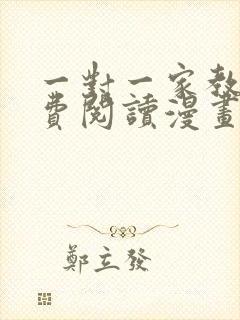 一對一家教
費閱讀漫畫
鄭立發